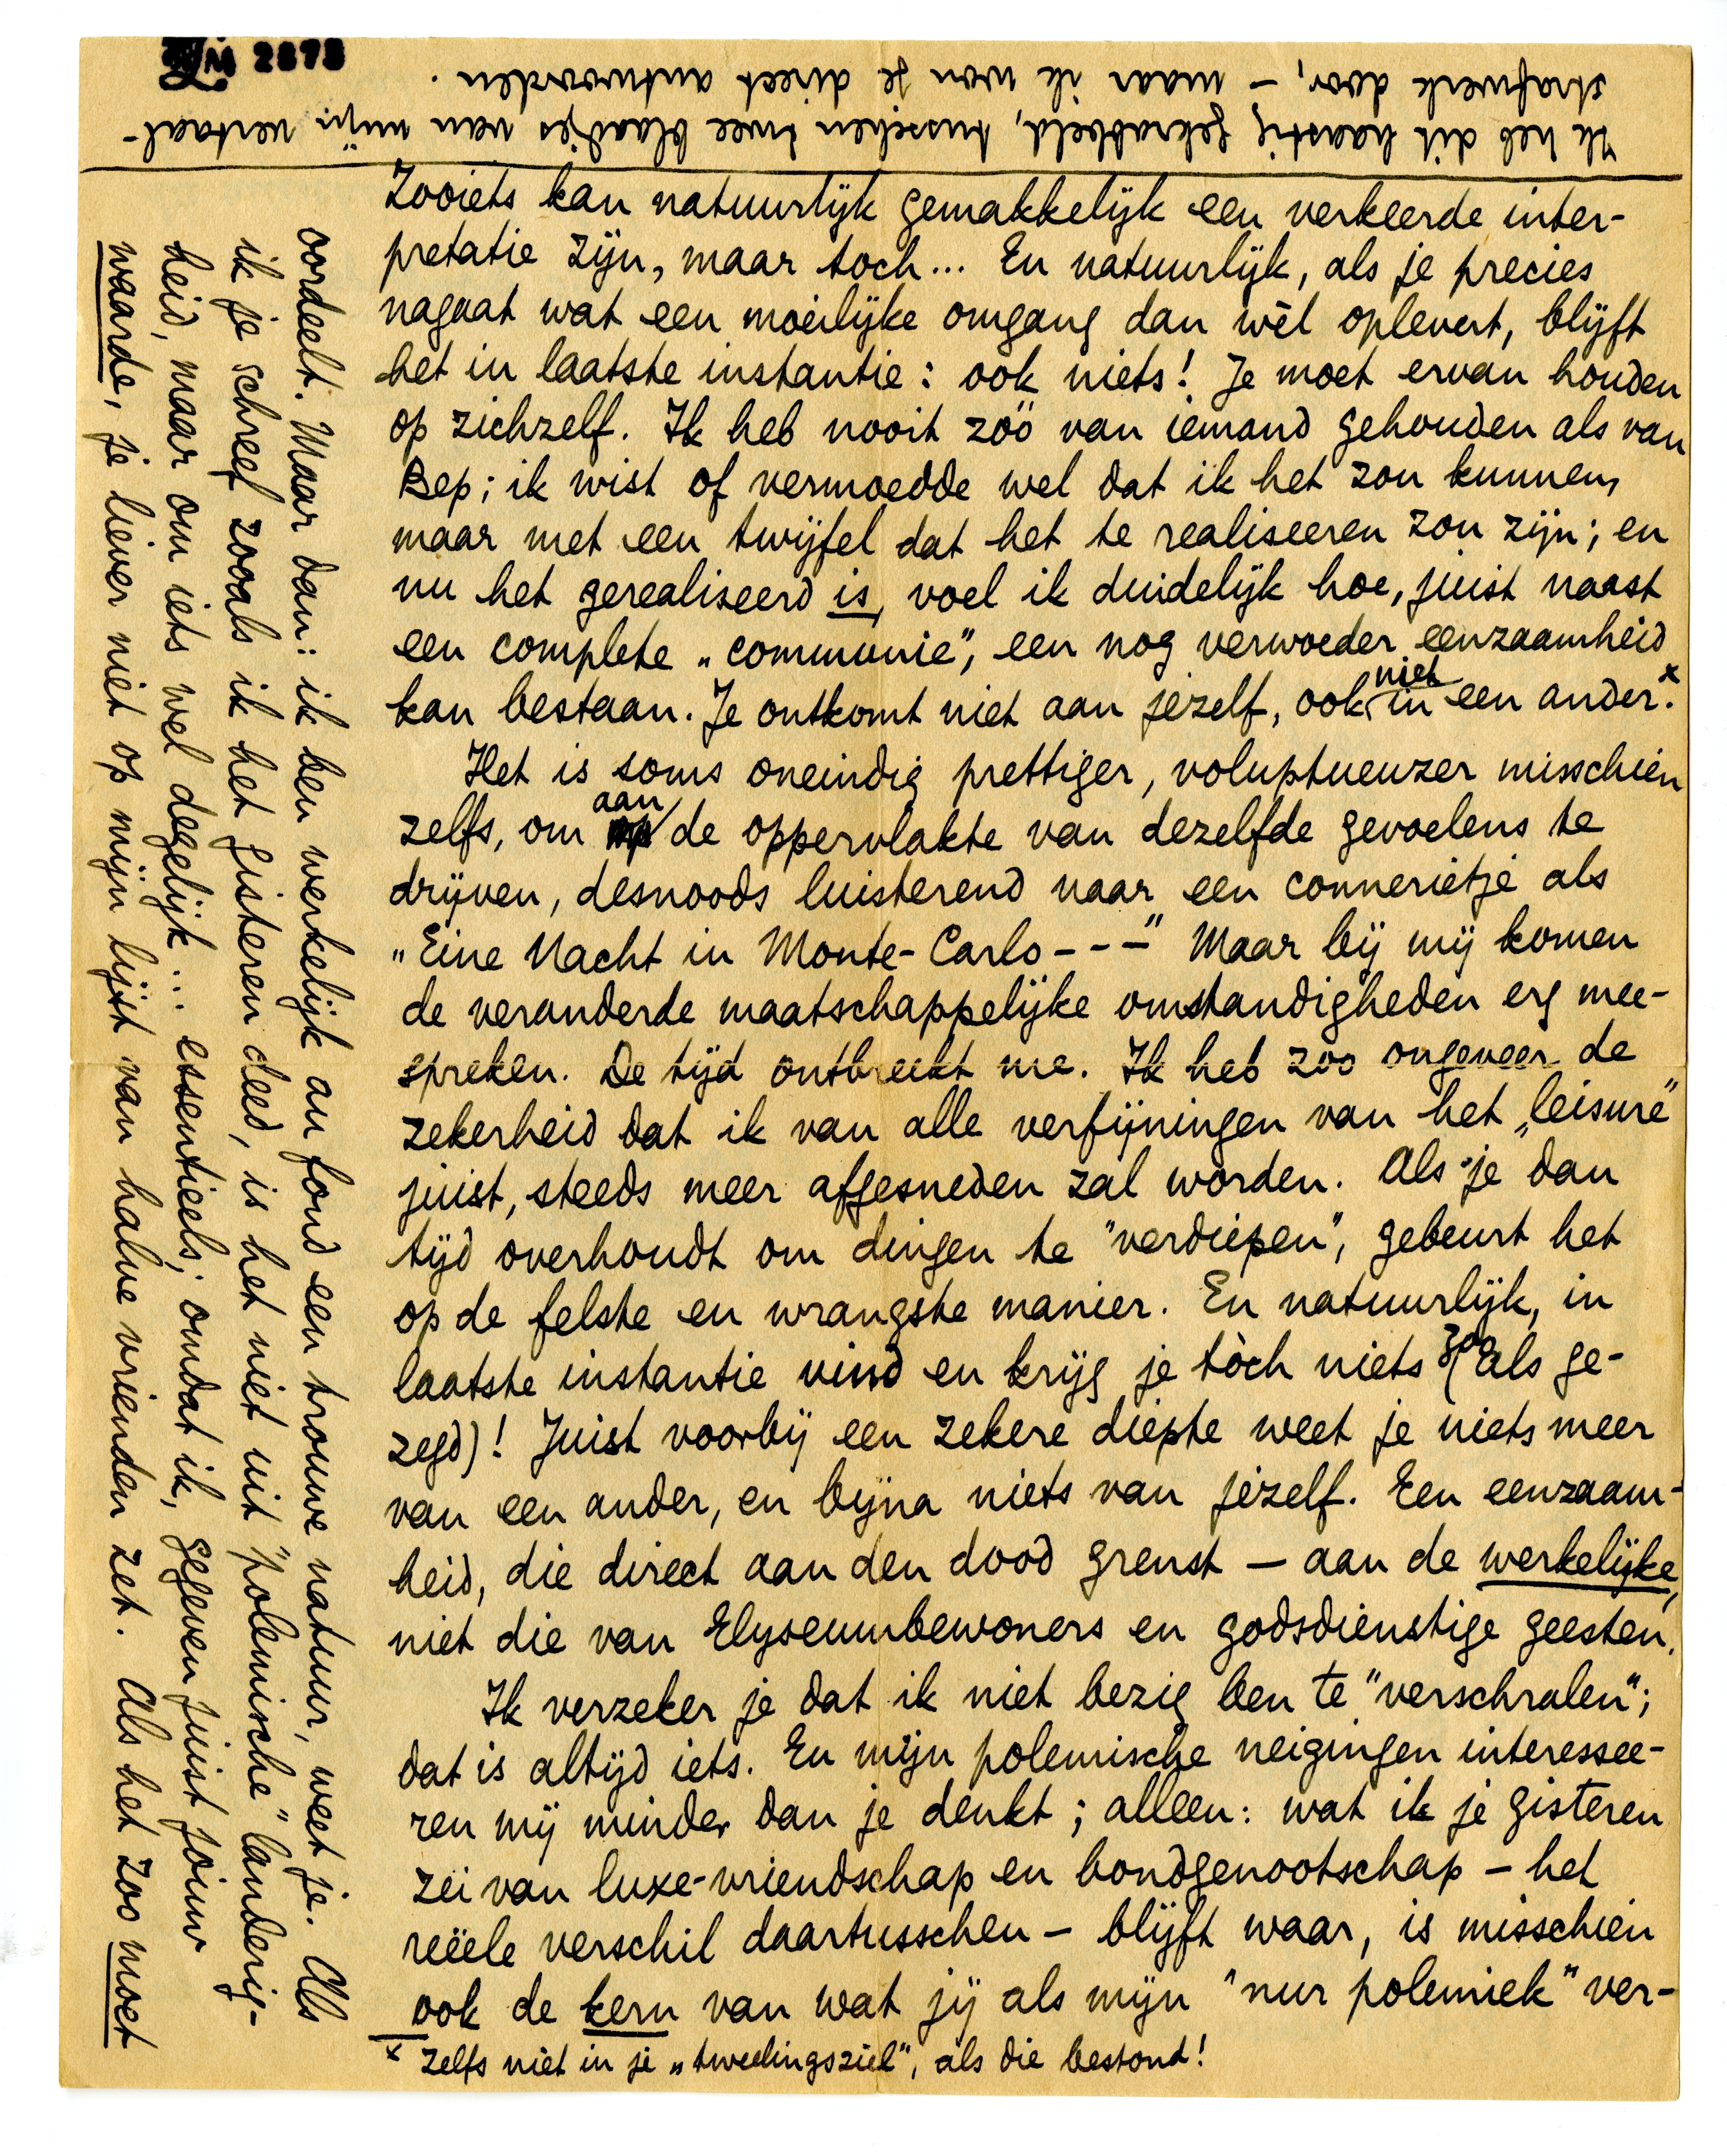 LM 2878
Zooiets kan natuurlijk gemakkelijk een verkeerde inter-
pretatie zijn, maar toch... En natuurlijk, als je precies
nagaat wat een moeilijke omgang dan wèl oplevert, blijft
het in laatste instantie: ook niets! Je moet ervan houden
op zichzelf. Ik heb nooit zóó van iemand gehouden als van
Bep; ik wist of vermoedde wel dat ik het zou kunnen,
maar met een twijfel dat het te realiseeren zou zijn; en
nu het gerealiseerd is, voel ik duidelijk hoe, juist naast
een complete „communie", een nog verwoeder eenzaamheid
kan bestaan. Je ontkomt niet aan jezelf, ook niet in een ander.x
Het is soms oneindig prettiger, voluptueuzer misschien
zelfs, om aan de oppervlakte van dezelfde gevoelens te
drijven, desnoods luisterend naar een connerietje als
„Eine Nacht in Monte-Carlo - - -" Maar bij mij komen
de veranderde maatschappelijke omstandigheden erg mee-
spreken. De tijd ontbreekt me. Ik heb zoo ongeveer de
zekerheid dat ik van alle verfijningen van het „leisure"
juist, steeds meer afgesneden zal worden. Als je dan
tijd overhoudt om dingen te "verdiepen", gebeurt het
op de felste en wrangste manier. En natuurlijk, in
laatste instantie vind en krijg je tòch niets (zooals ge-
zegd)! Juist voorbij een zekere diepte weet je niets meer
van een ander, en bijna niets van jezelf. Een eenzaam-
heid, die direct aan den dood grenst — aan de werkelijke,
niet die van Elyseumbewoners en godsdienstige geesten.
Ik verzeker je dat ik niet bezig ben te "verschralen";
dat is altijd iets. En mijn polemische neigingen interessee-
ren mij minder dan je denkt; alleen: wat ik je gisteren
zei van luxe-vriendschap en bondgenootschap — het
reëele verschil daartusschen — blijft waar, is misschien
ook de kern van wat jij als mijn "nur polemiek" ver-
x zelfs niet in je „tweelingsziel", als die bestond!
oordeelt. Maar dan: ik ben werkelijk au fond een trouwe natuur, weet je. Als
ik je schreef zooals ik het gisteren deed, is het niet uit "polemische" landerig-
heid, maar om iets wel degelijk... essentieels; omdat ik, gegeven juist jouw
waarde, je liever niet op mijn lijst van halve vrienden zet. Als het zoo moet
Ik heb dit haastig gekrabbeld, tusschen twee blaadjes van mijn vertaal-
strafwerk door, — maar ik wou je direct antwoorden.